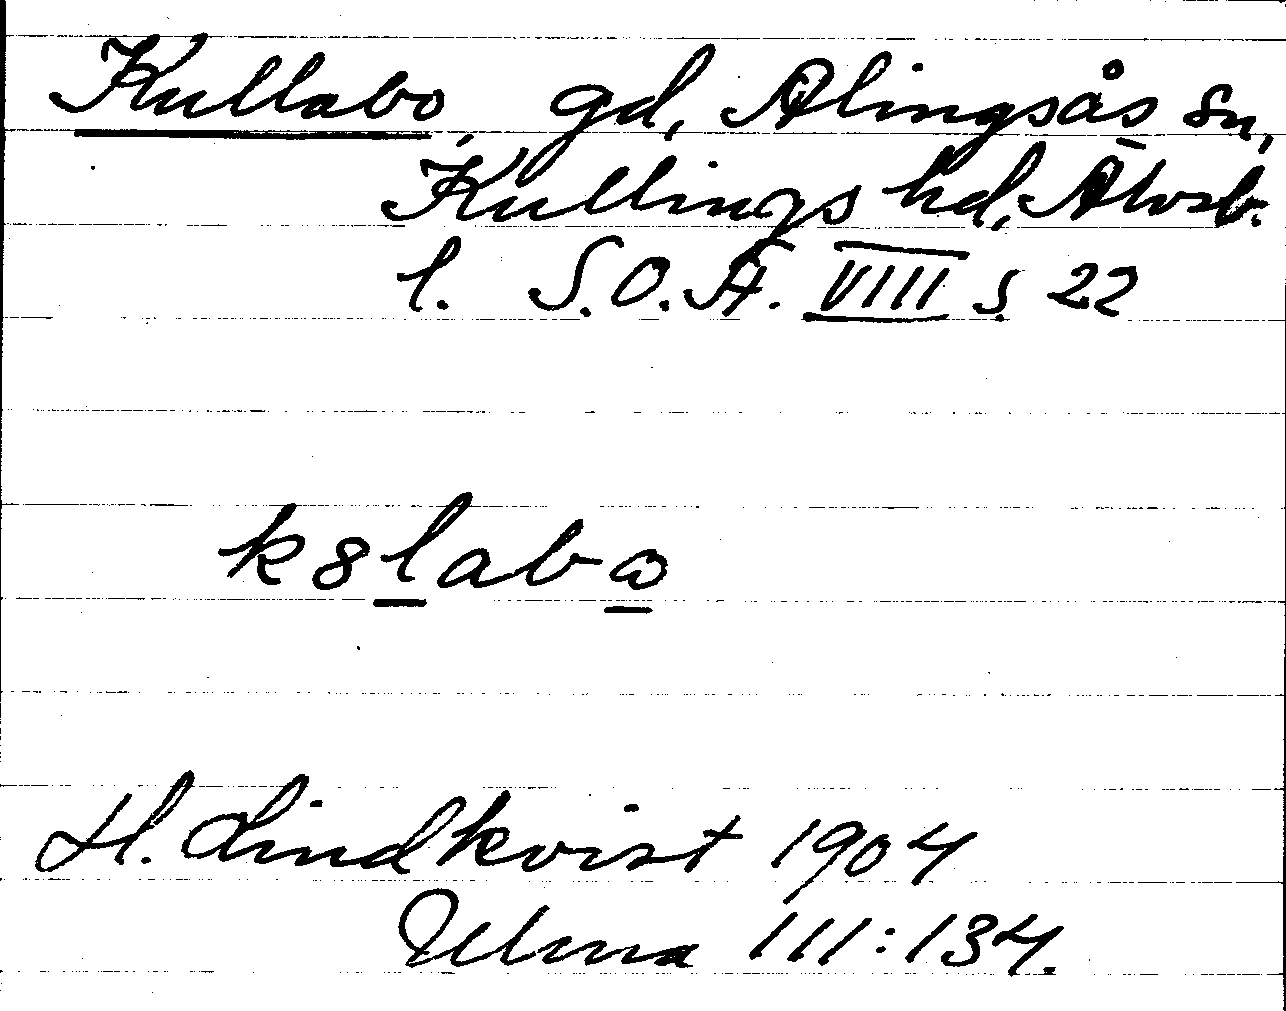 Kullabo, gd, Alingsås sn,
Kullings hd, Älvsb.
l. S.O.Ä. VIII s. 22
k8labɷ
H. Lindkvist 1904
Ulma 111:134.